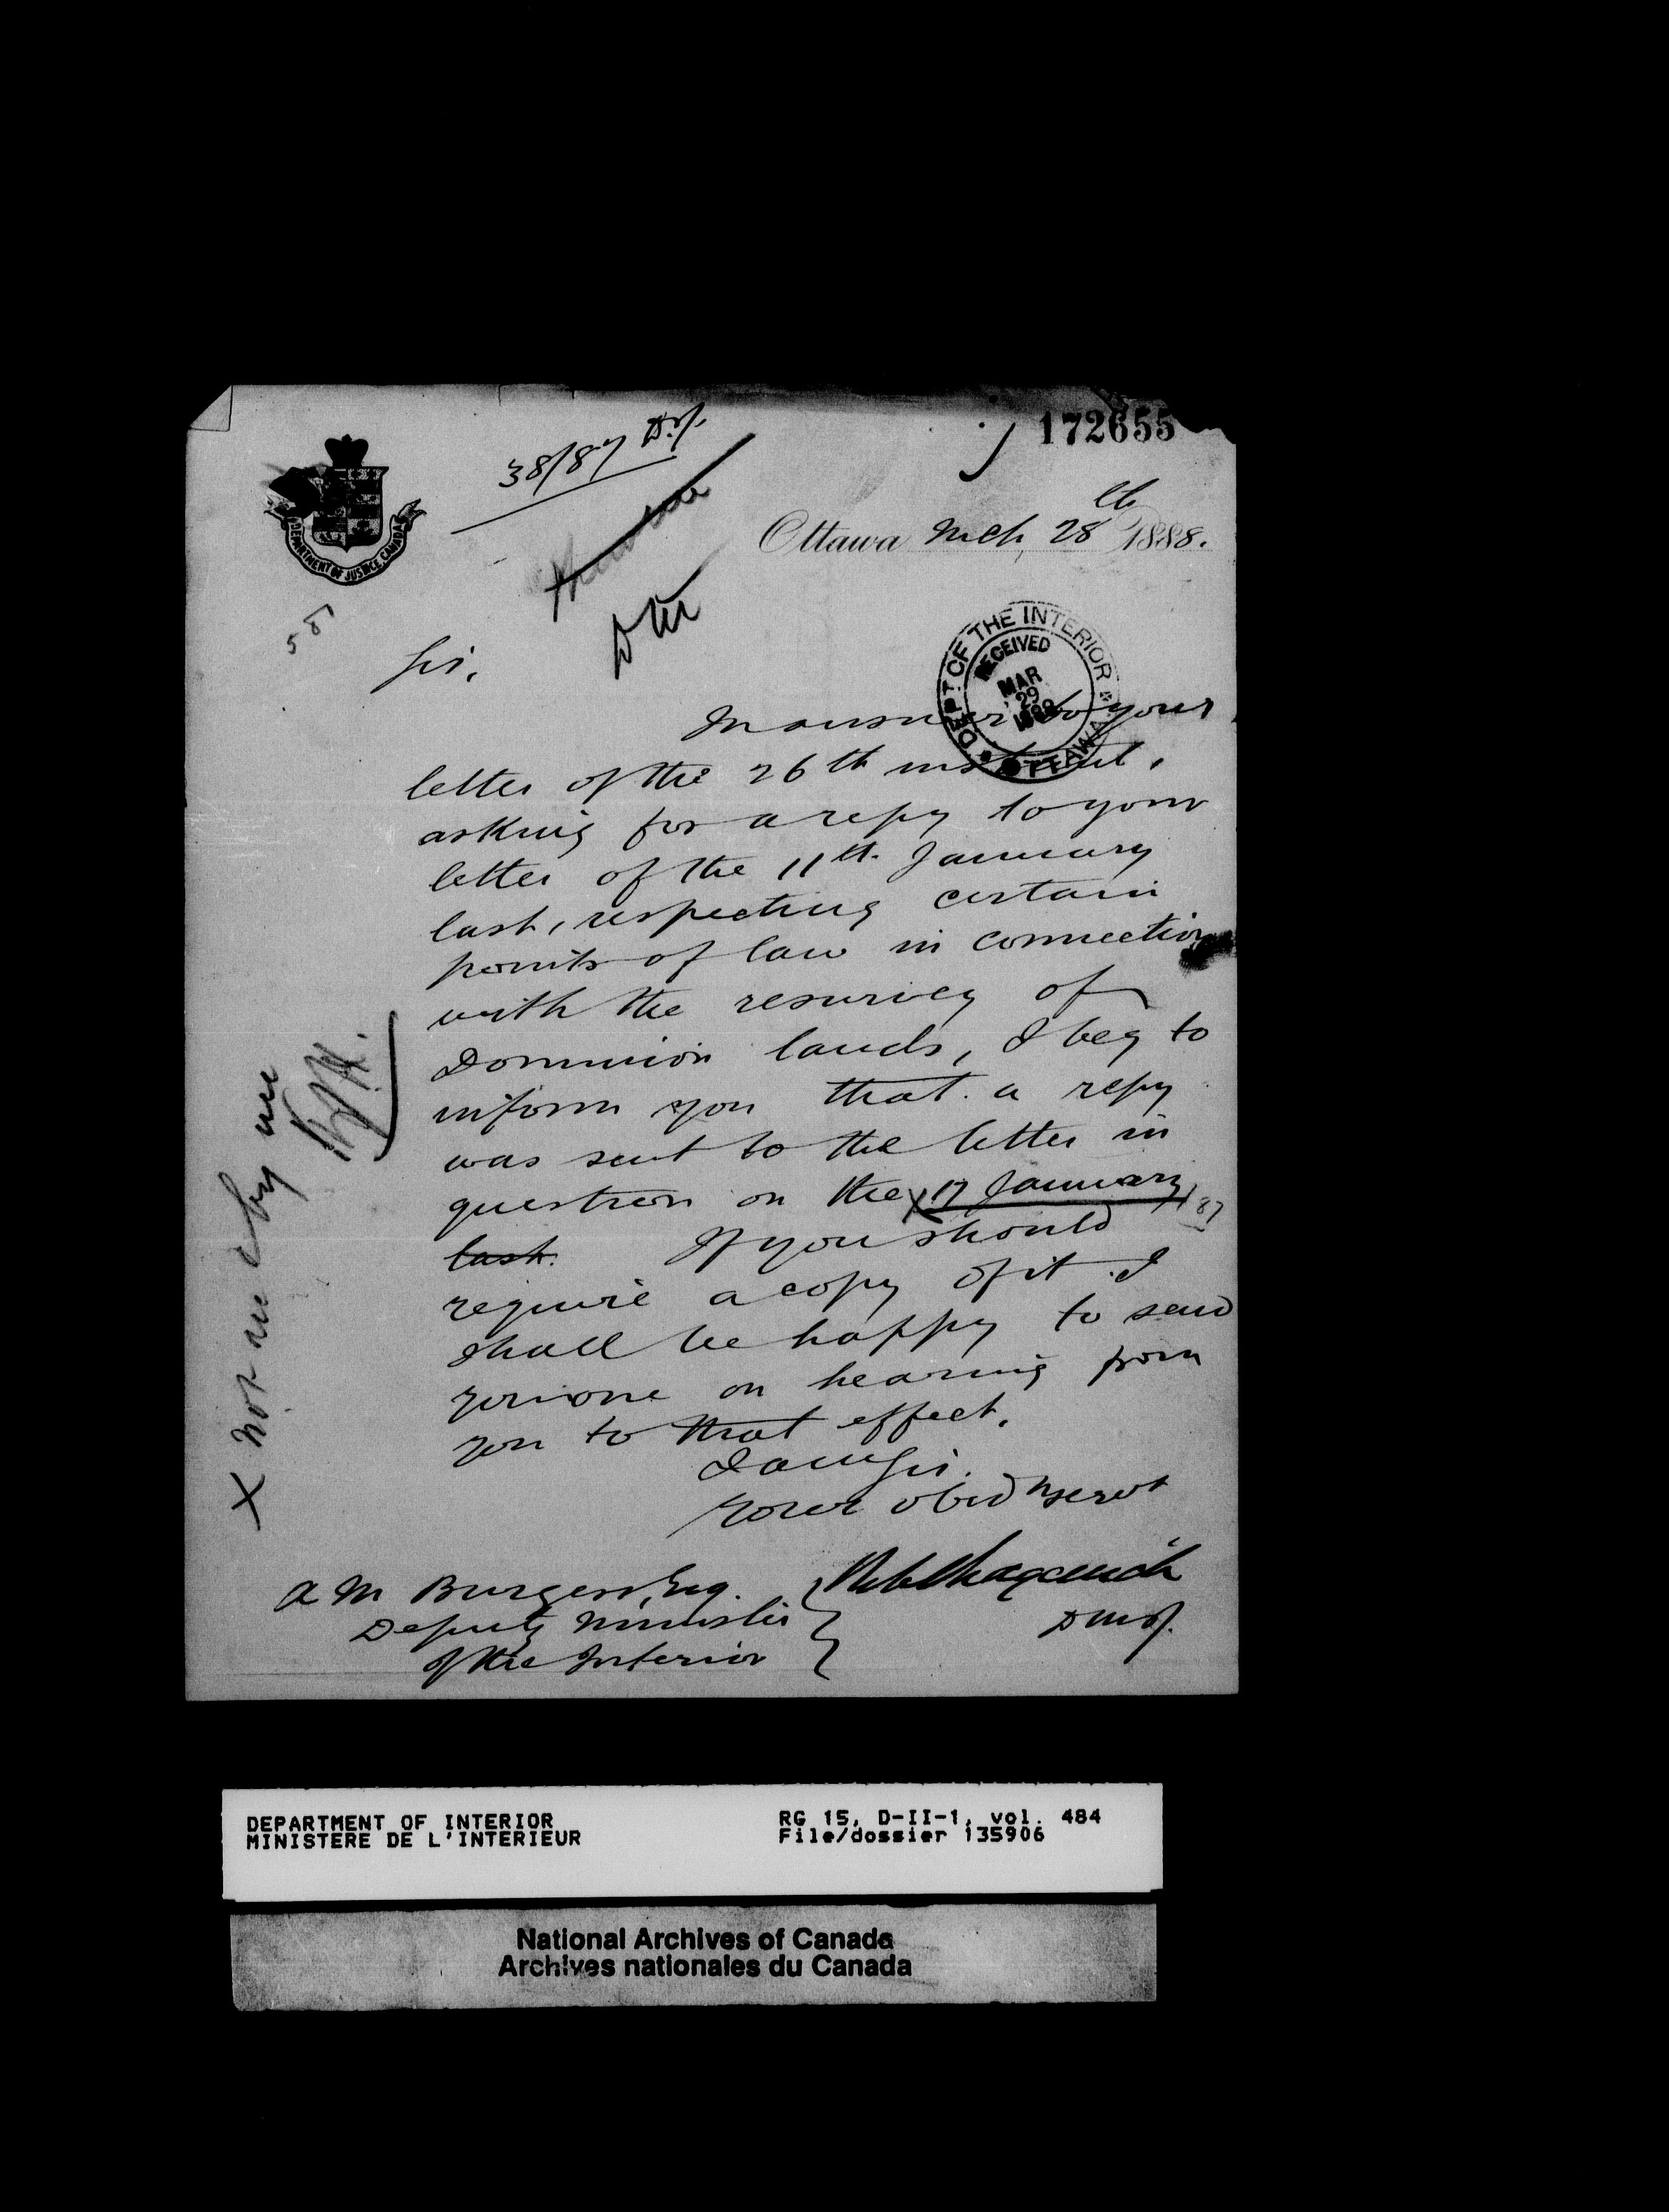 172655
38/87 D.J.
DEPARTMENT OF JUSTICE CANADA
Ottawa Mch 28th 1888.
58
DEPT OF THE INTERIOR
OTTAWA
RECEIVED
MAR
29
1888
Sir,
In answer to your
letter of the 26th instant,
asking for a repy to your
letter of the 11th January
last, respecting certain
points of law in connection
with the resurvey of
Dominion lands, I beg to
inform you that a repy
was sent to the letter in
question on the x 17 January /87
last. If you should
require a copy of it I
shall be happy to send
you one on hearing from
you to that effect.
I am Sir.
Your obedt servt
DMJ.
A M Burgess, Esq.
Deputy Minister
of the Interior
X Not me by me
DEPARTMENT OF INTERIOR
MINISTERE DE L'INTERIEUR
RG 15, D-II-1, vol. 484
File/dossier 135906
National Archives of Canada
Archives nationales du Canada